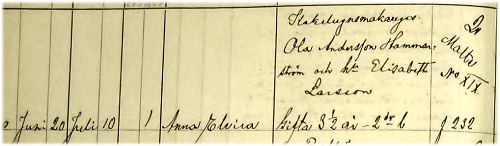 Kakelugnsmakaregos.
Ola Andersson Hammar-
ström och h:u Elisabeth
Larsson
Malta
No XIX
Juni 20 Juli 10 1 Anna Elvira Gifta 3 1/2 år - 2dr b f 232